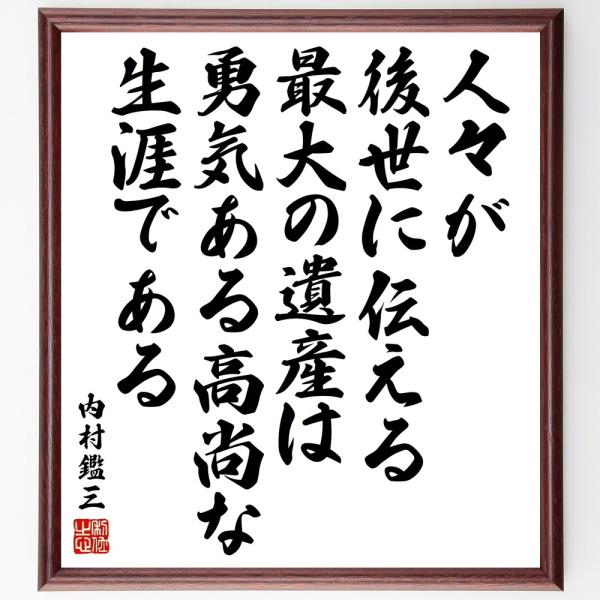 人々が
後世に伝える
最大の遺産は
勇気ある高尚な
生涯である
内村鑑三